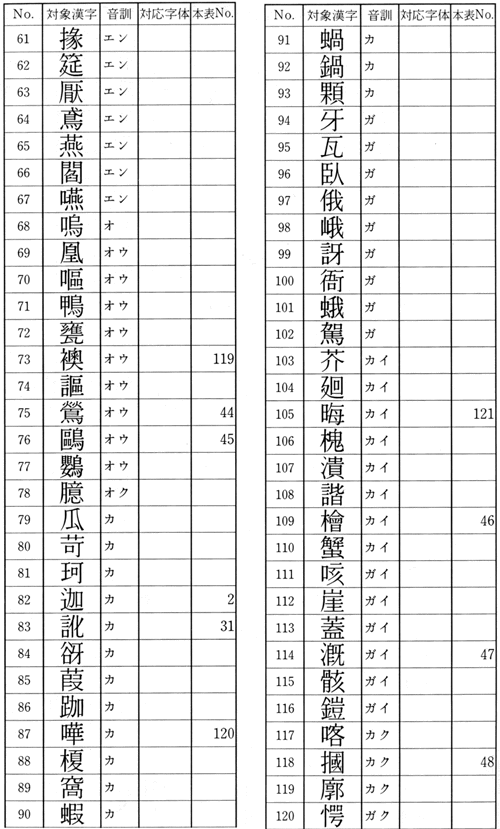 No. 対象漢字 音訓 対応字体 本表No.
61 掾 エン
62 筵 エン
63 厭 エン
64 鳶 エン
65 燕 エン
66 閻 エン
67 嚥 エン
68 嗚 オ
69 凰 オウ
70 嘔 オウ
71 鴨 オウ
72 甕 オウ
73 襖 オウ 119
74 謳 オウ
75 鶯 オウ 44
76 鷗 オウ 45
77 鸚 オウ
78 臆 オク
79 瓜 カ
80 苛 カ
81 珂 カ
82 迦 カ 2
83 訛 カ 31
84 谺 カ
85 葭 カ
86 跏 カ
87 嘩 カ 120
88 榎 カ
89 窩 カ
90 蝦 カ
No. 対象漢字 音訓 対応字体 本表No.
91 蝸 カ
92 鍋 カ
93 顆 カ
94 牙 ガ
95 瓦 ガ
96 臥 ガ
97 俄 ガ
98 峨 ガ
99 訝 ガ
100 衙 ガ
101 蛾 ガ
102 駕 ガ
103 芥 カイ
104 廻 カイ
105 晦 カイ 121
106 槐 カイ
107 潰 カイ
108 諧 カイ
109 檜 カイ 46
110 蟹 カイ
111 咳 ガイ
112 崖 ガイ
113 蓋 ガイ
114 漑 ガイ 47
115 骸 ガイ
116 鎧 ガイ
117 喀 カク
118 摑 カク 48
119 廓 カク
120 愕 ガク